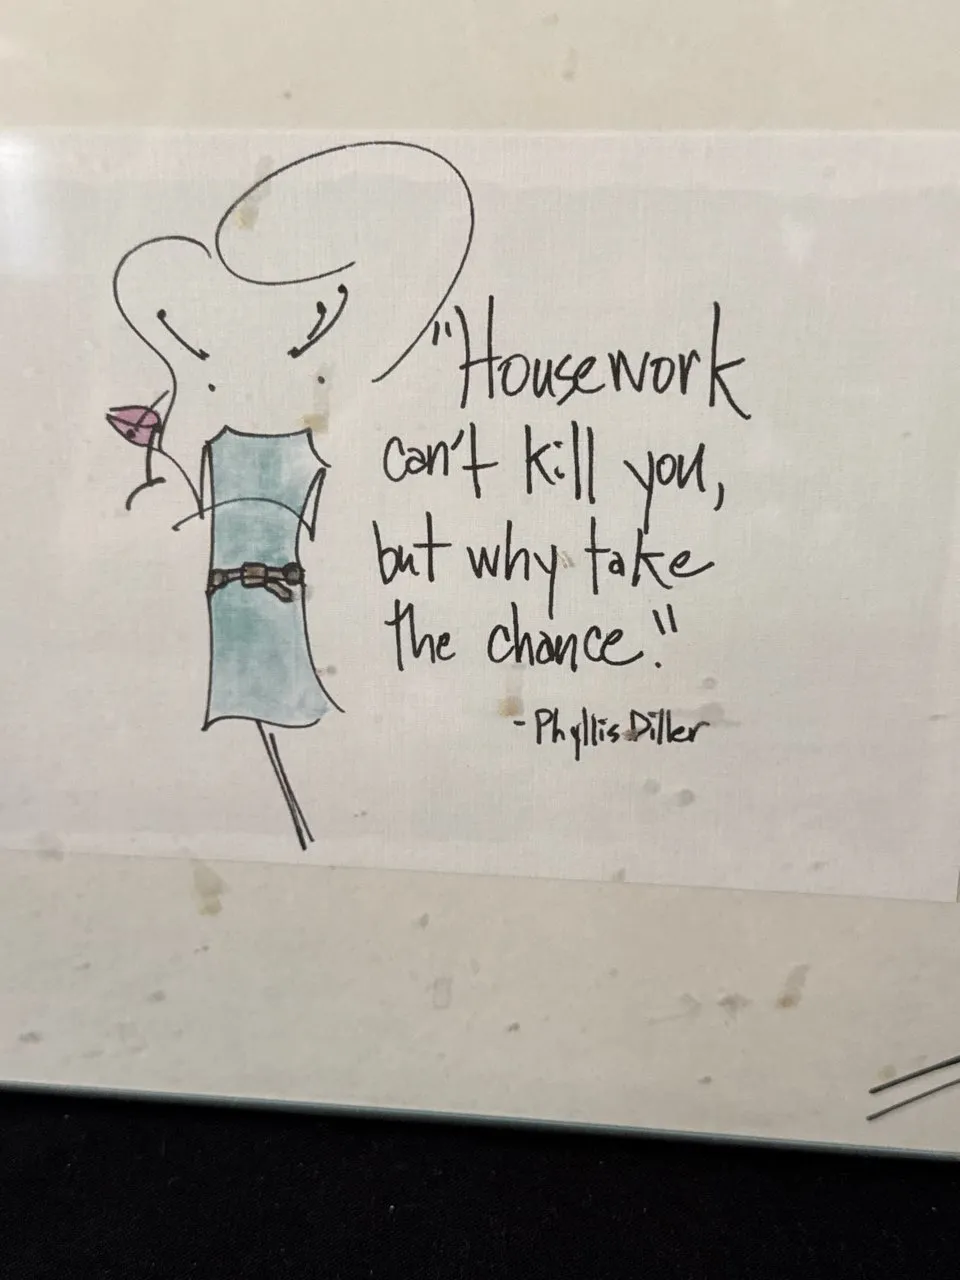 "Housework
can't kill you,
but why take
the chance."
- Phyllis Diller